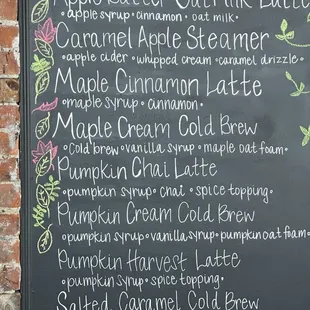 Apple Butter Oatmilk Latte
•apple syrup •cinnamon • oat milk •
Caramel Apple Steamer
•apple cider •whipped cream •caramel drizzle •
Maple Cinnamon Latte
•maple syrup •cinnamon•
Maple Cream Cold Brew
•Cold brew •vanilla syrup • maple oat foam•
Pumpkin Chai Latte
•pumpkin syrup • chai • spice topping•
Pumpkin Cream Cold Brew
•pumpkin syrup •vanilla syrup •pumpkin oat foam•
Pumpkin Harvest Latte
•pumpkin syrup •spice topping•
Salted Caramel Cold Brew